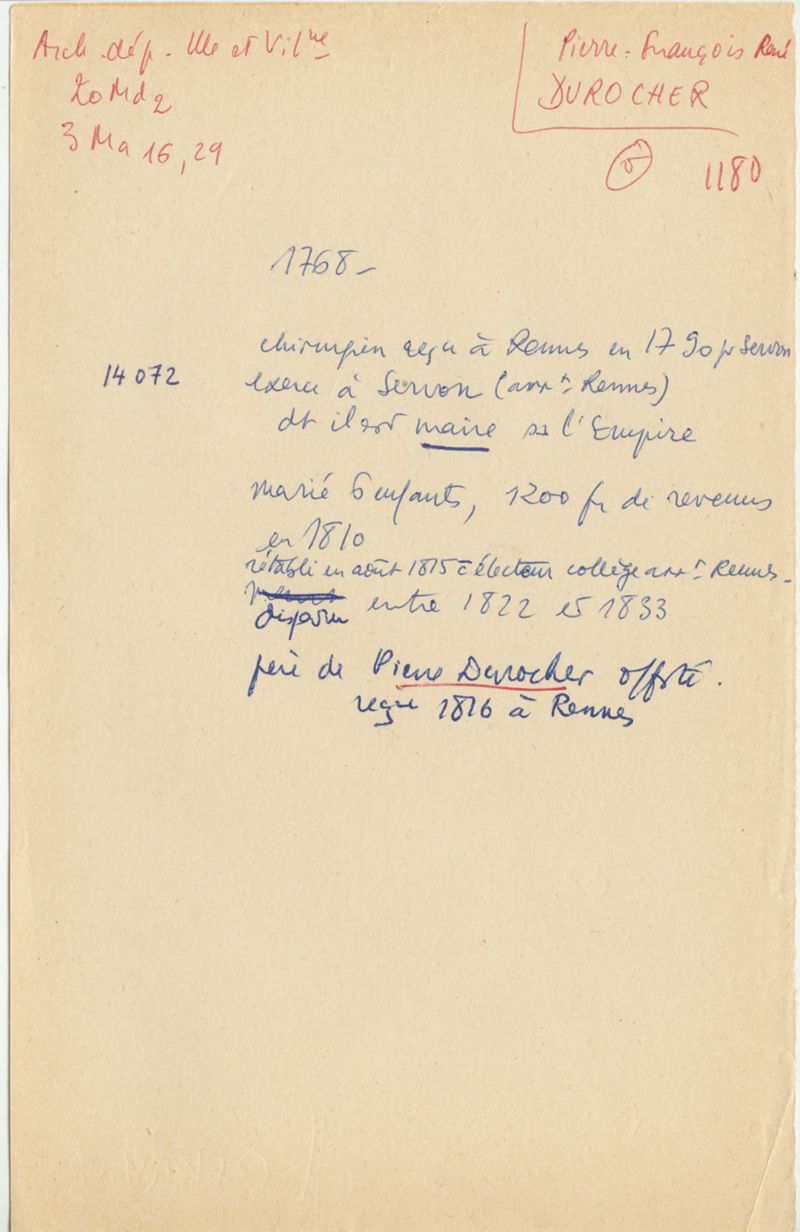 Arch. dép. Ille et Vilne
20 Md2
3 Ma 16, 29
Pierre-François René
DUROCHER
1180
1768-
chirurgien reçu à Rennes en 1790 pr Servon
14 072
exerce à Servon (arrt Rennes)
dt il est maire ss l'Empire
marié 6 enfants, 1200 fr de revenus
en 1810
rétabli en août 1815 c électeur collège arrt Rennes-
disparu entre 1822 et 1833
père de Pierre Durocher offsté.
reçu 1816 à Rennes